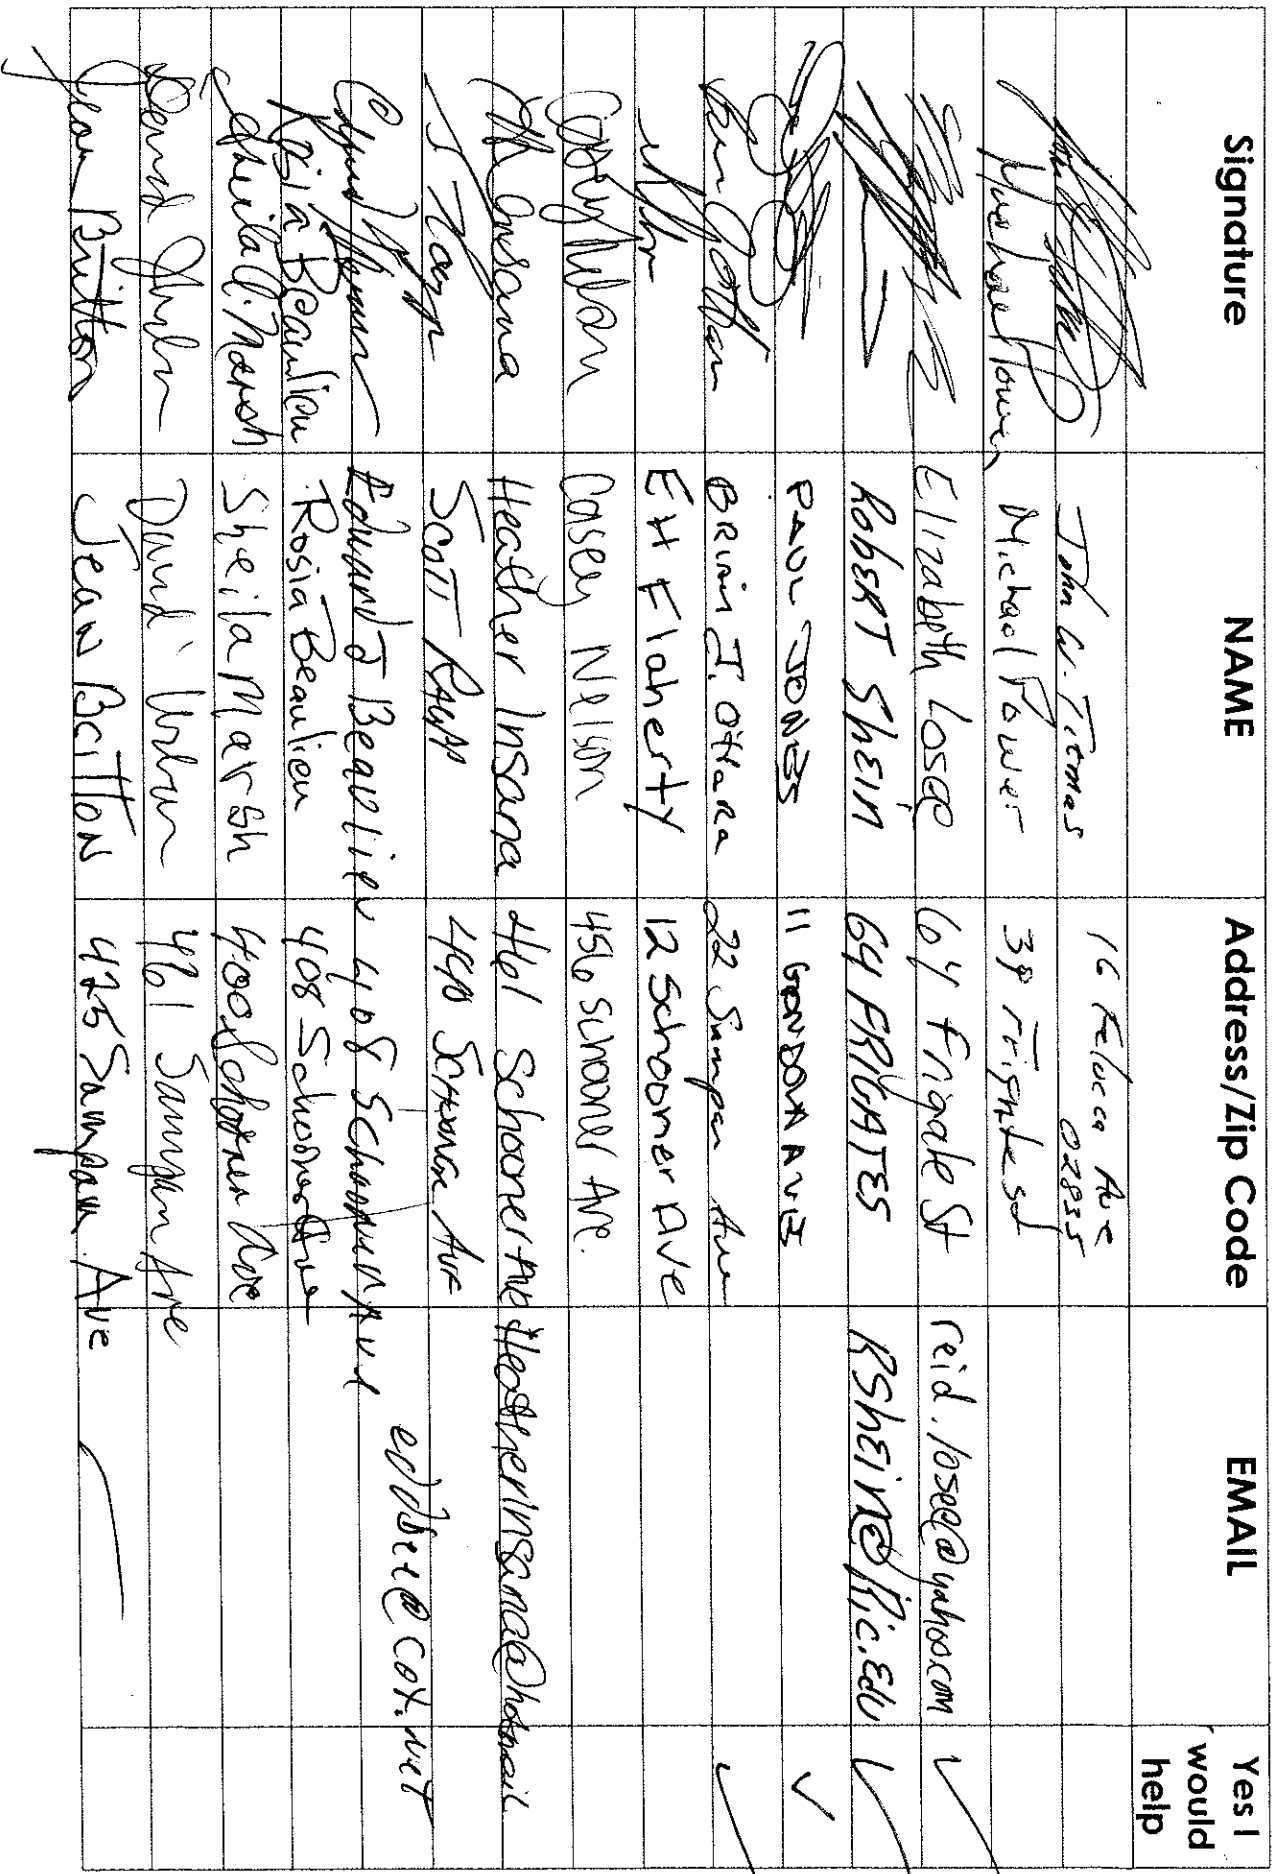 Signature NAME Address/Zip Code EMAIL Yes I would help
John W. Titmas 16 Felucca Ave 02835
Michael Power
Elizabeth Losee 64 Frigate St reid.losee@yahoo.com ✓
Robert Shein 64 FRIGATES RShein@Ric.Edu ✓
PAUL JONES 11 GONDOLA AVE ✓
BRIAN J. O'HARA 22 Sampan Ave ✓
EH Flaherty 12 Schooner Ave
Casey Nelson Casey Nelson 456 Schooner Ave.
Insana Heather Insana 461 Schooner Ave HeatherInsana@hotmail.
SCOTT RAPP Schooner Ave
Edward J Beaulieu 408 Schooner Ave eddbee@cox.net
Rosia Beaulieu Rosia Beaulieu 408 Schooner Ave
Sheila Marsh Sheila Marsh 400 Schooner Ave
David David Urban 461 Sampan Ave
Jean Britton Jean Britton 425 Sampan Ave